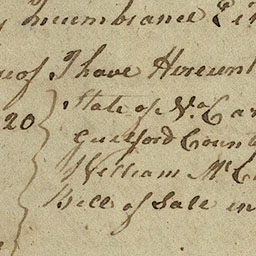 Incumbrance
of I have Hereunt
20 State of No Car
Guilford Count
William Mc
Bill of Sale in